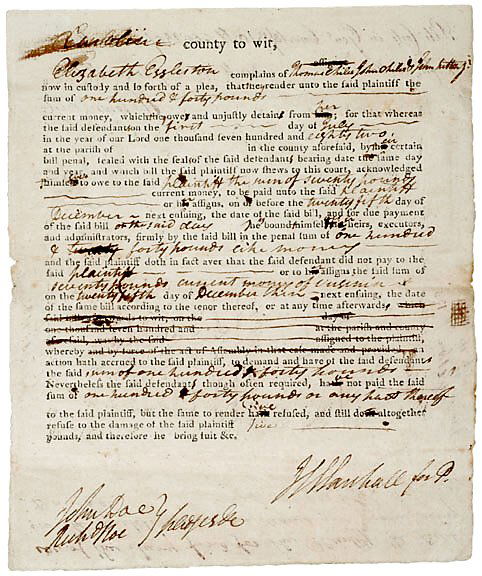 county to wit,
Elizabeth Eggleston complains of Thomas Childs John Childs &
now in custody and so forth of a plea, that they render unto the said plaintiff the
sum of one hundred & forty pounds
current money, which they owe and unjustly detain from her; for that whereas
the said defendants on the first day of July
in the year of our Lord one thousand seven hundred and eighty two,
at the parish of in the county aforesaid, by their certain
bill penal, sealed with the seals of the said defendants bearing date the same day
and year and which bill the said plaintiff now shews to this court, acknowledged
to owe to the said plaintiff the sum of seventy pounds
current money, to be paid unto the said plaintiff
or his assigns, on or before the twenty fifth day of
December next ensuing, the date of the said bill, and for due payment
of the said bill on the said day he bound himself his heirs, executors,
and administrators, firmly by the said bill in the penal sum of one hundred
& forty pounds like money
and the said plaintiff doth in fact aver that the said defendant did not pay to the
said plaintiff or to his assigns the said sum of
seventy pounds current money of Virginia
on the twenty fifth day of December then next ensuing, the date
of the same bill according to the tenor thereof, or at any time afterwards, which
said bill afterwards to wit, on the day of
one thousand seven hundred and at the parish and county
aforesaid, was by the said assigned to the plaintiff,
whereby and by force of the act of Assembly in that case made and provided
action hath accrued to the said plaintiff to demand and have of the said defendants
the said sum of one hundred & forty pounds
Nevertheless the said defendants though often required, have not paid the said
sum of one hundred & forty pounds or any part thereof
to the said plaintiff, but the same to render have refused, and still do altogether
refuse to the damage of the said plaintiff five
pounds, and therefore he bring suit &c.
J Marshall for P.
John Doe
Richd Roe } pledges &c